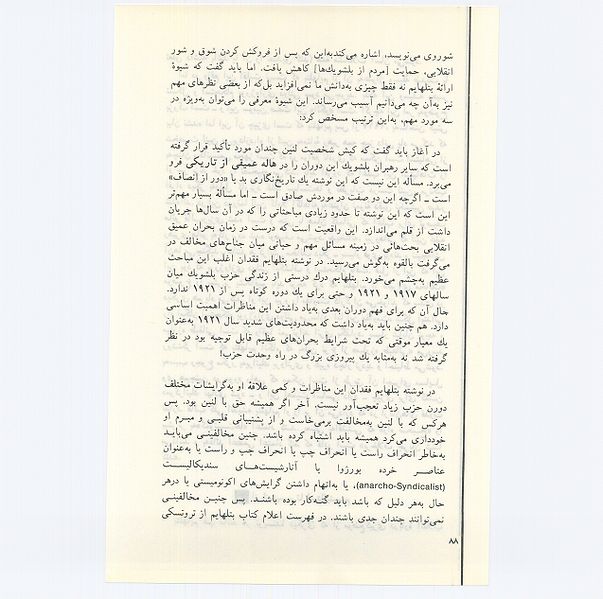 شوروی می‌نویسد، اشاره می‌کندبه‌این که پس از فروکش کردن شوق و شور
انقلابی، حمایت [مردم از بلشویك‌ها] کاهش یافت. اما باید گفت که شیوهٔ
ارائهٔ بتلهایم نه فقط چیزی به‌دانش ما نمی‌افزاید بل‌که از بعضی نظرهای مهم
نیز به‌آن چه می‌دانیم آسیب می‌رساند. این شیوهٔ معرفی را می‌توان به‌ویژه در
سه مورد مهم، به‌این ترتیب مسخص کرد:
در آغاز باید گفت که کیش شخصیت لنین چندان مورد تأکید قرار گرفته
است که سایر رهبران بلشویك این دوران را در هاله عمیقی از تاریکی فرو
می‌برد. مسأله این نیست که این نوشته یك تاریخ‌نگاری بد یا «دور از انصاف»
است ـ اگرچه این دو صفت در موردش صادق است ـ اما مسألهٔ بسیار مهم‌تر
این است که این نوشته تا حدود زیادی مباحثاتی را که در آن سال‌ها جریان
داشت از قلم می‌اندازد. این واقعیت است که درست در زمان بحران عمیق
انقلابی بحث‌هائی در زمینه مسائل مهم و حیاتی میان جناح‌های مخالف در
می‌گرفت بالقوه به‌گوش می‌رسید. در نوشته بتلهایم فقدان اغلب این مباحث
عظیم به‌چشم می‌خورد. بتلهایم درك درستی از زندگی حزب بلشویك میان
سالهای ۱۹۱۷ و ۱۹۲۱ و حتی برای یك دوره کوتاه پس از ۱۹۲۱ ندارد.
حال آن که برای فهم دوران بعدی به‌یاد داشتن این مناظرات اهمیت اساسی
دارد. هم چنین باید به‌یاد داشت که محدودیت‌های شدید سال ۱۹۲۱ به‌عنوان
یك معیار موقتی که تحت شرایط بحران‌های عظیم قابل توجیه بود در نظر
گرفته شد نه به‌مثابه یك پیروزی بزرگ در راه وحدت حزب!
در نوشته بتلهایم فقدان این مناظرات و کمی علاقهٔ او به‌گرایشات مختلف
دورن حزب زیاد تعجب‌آور نیست. آخر اگر همیشه حق با لنین بود، پس
هرکس که با لنین به‌مخالفت برمی‌خاست و از پشتیبانی قلبی و مبرم او
خودداری می‌کرد همیشه باید اشتباه کرده باشد. چنین مخالفینی می‌بایـد
به‌خاطر انحراف راست یا انحراف چپ یا انحراف چپ و راست یا به‌عنوان
عناصـر خرده بورژوا یا آنارشیست‌هـای سندیکالیسـت
(anarcho-Syndicalist)، یا به‌اتهام داشتن گرایش‌های اکونومیستی یا درهر
حال به‌هر دلیل که باشد باید گنـه‌کار بوده باشنـد. پس چنیـن مخالفینـی
نمی‌توانند چندان جدی باشند. در فهرست اعلام کتاب بتلهایم از تروتسکی
۸۸